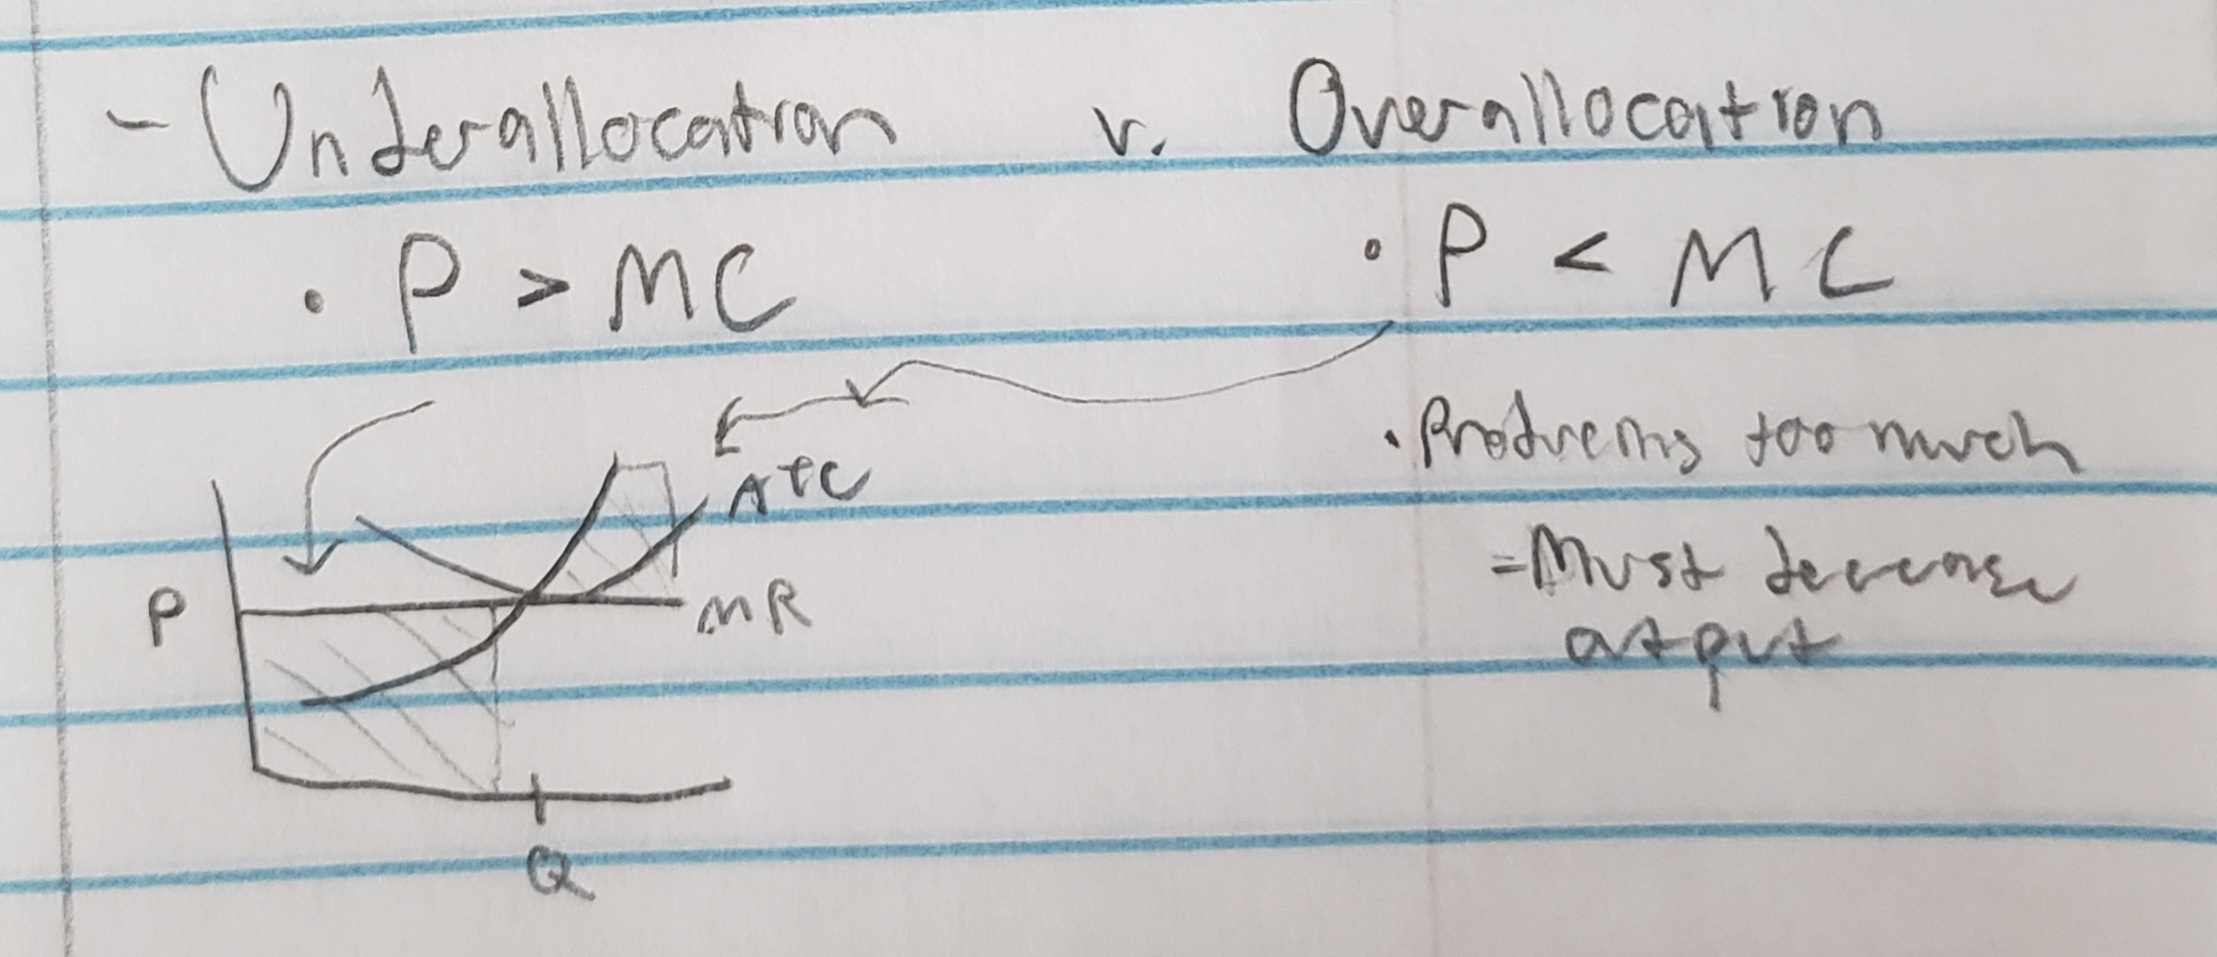 - Underallocation v. Overallocation
• P > MC
• P < MC
• Producing too much
= Must decrease
output
ATC
P
MR
Q